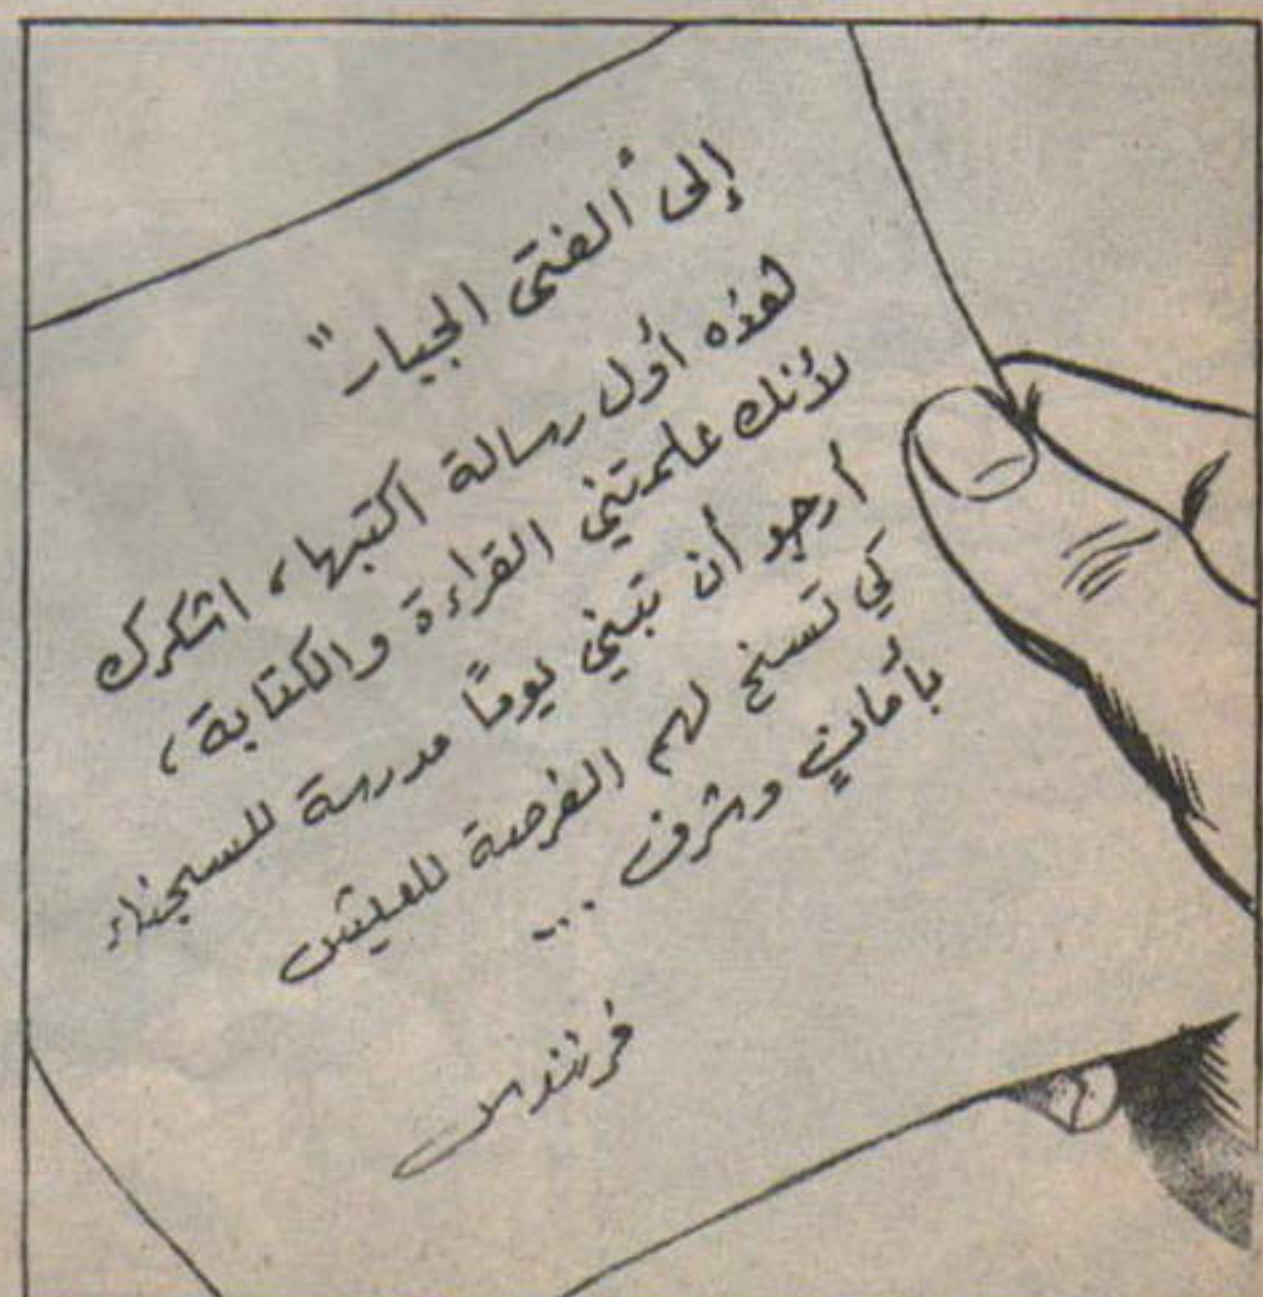 إلى "الفتى الجبار"
هذه أول رسالة اكتبها، اشكرك
لأنك علمتني القراءة والكتابة،
أرجو أن تبني يوماً مدرسة للسجناء
كي تسنح لهم الفرصة للعيش
بأمانٍ وشرف ...
فرنندس